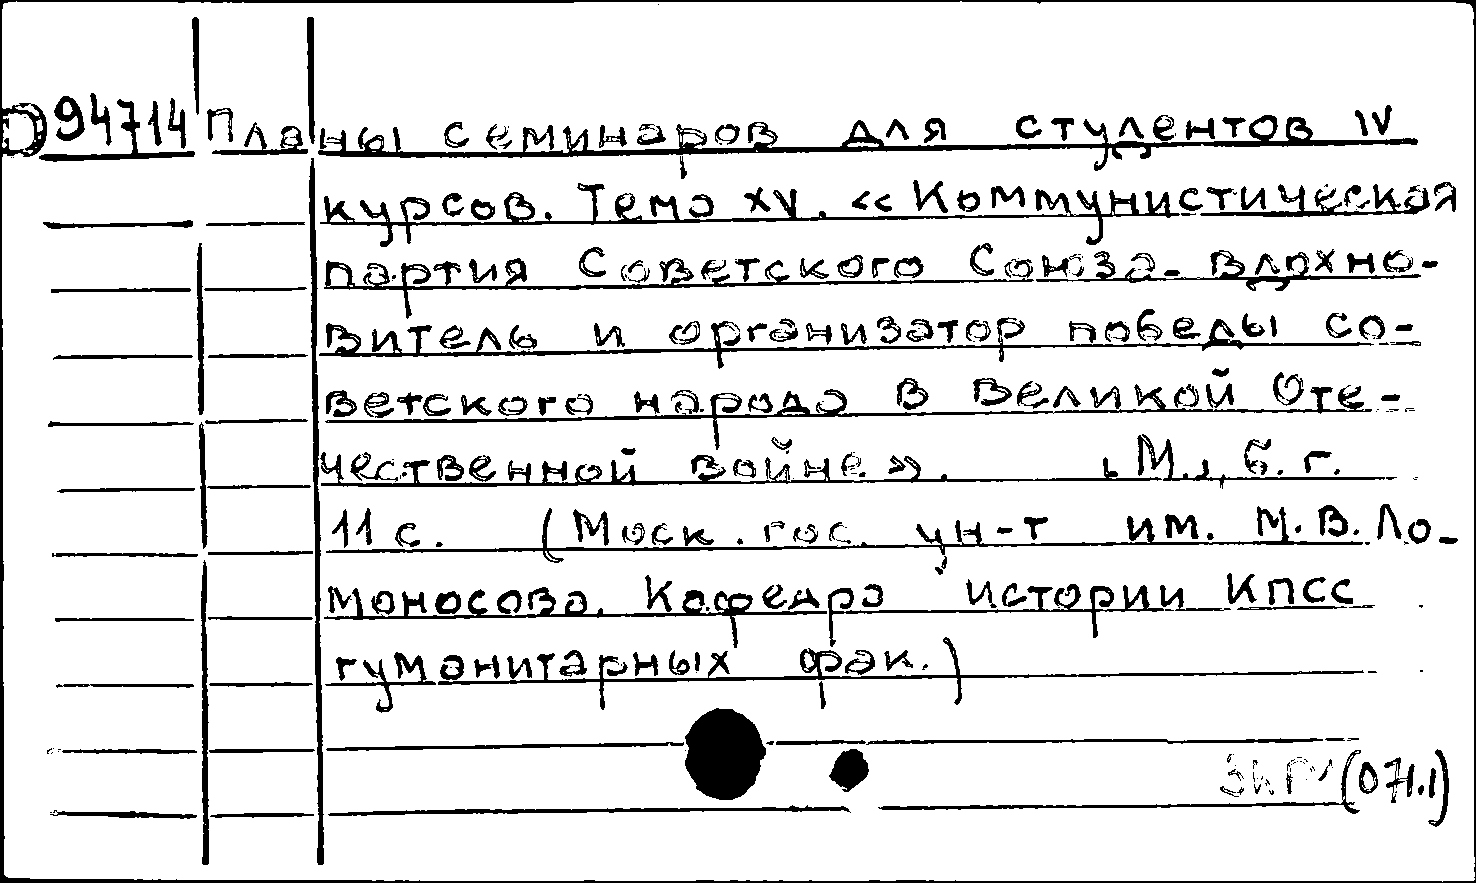 D94714 Планы семинаров для студентов IV
курсов. Тема XV. «Коммунистическая
партия Советского Союза - вдохно-
витель и организатор победы со-
ветского народа в Великой Оте-
чественной войне». [М.], б. г.
11 с. (Моск. гос. ун-т им. М. В. Ло-
моносова. Кафедра истории КПСС
гуманитарных фак.)
(071.1)